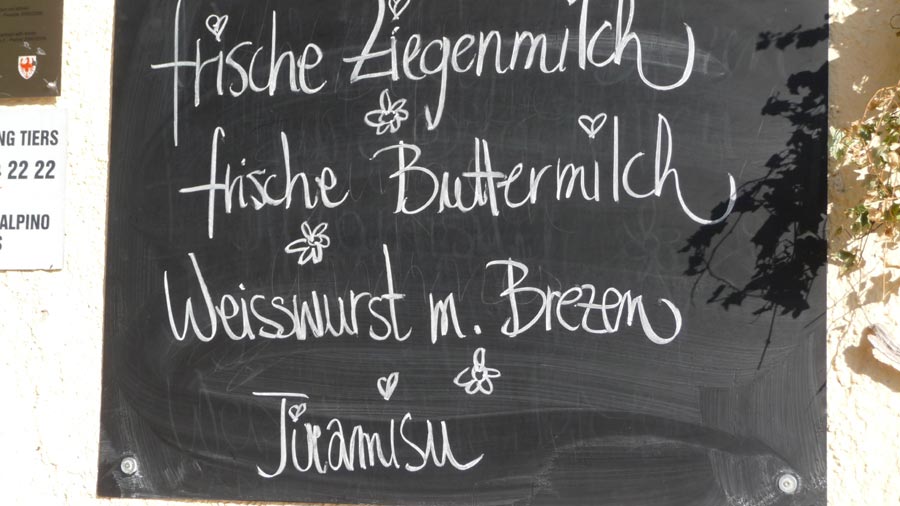 frische Ziegenmilch
frische Buttermilch
Weisswurst m. Brezen
Tiramisu
NG TIERS
22 22
ALPINO